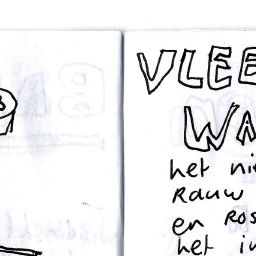 VLEE
WA
het ni
Rauw
en Ros
het in